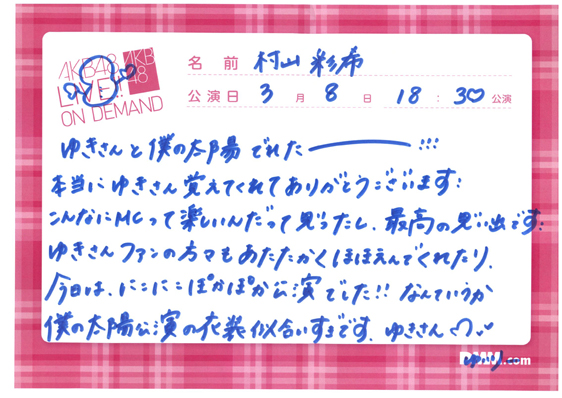 AKB48
LIVE!!
ON DEMAND
AKB
48
名前 村山 彩希
公演日 3月8日 18:30♡公演
ゆきさんと僕の太陽でれたー!!!
本当にゆきさん覚えてくれてありがとうございます!
こんなにMCって楽しいんだって思ったし、最高の思い出です!
ゆきさんファンの方々もあたたかくほほえんでくれたり、
今日は、にこにこぽかぽか公演でした!! なんていうか
僕の太陽公演の衣装似合いすぎです。ゆきさん♡
.com